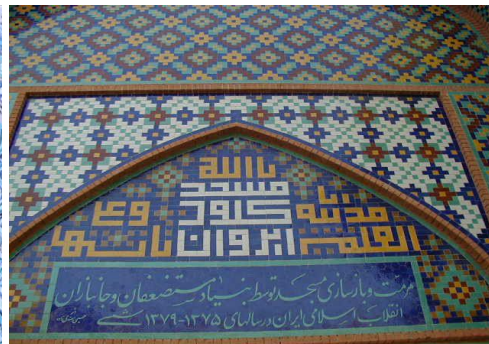 یا الله
مسجد
کبود
ایروان
انا مدینه
العلم
وعلی
بابها
مرمت و بازسازی مسجد توسط بنیاد مستضعفان و جانبازان
انقلاب اسلامی ایران در سالهای ۱۳۷۵-۱۳۷۹ شمسی